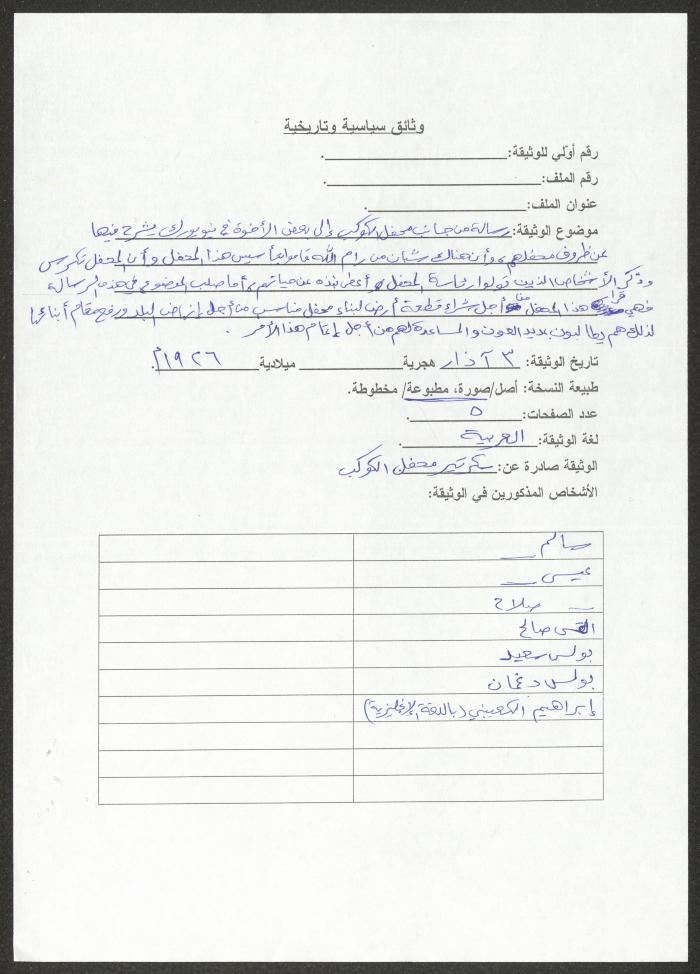 وثائق سياسية وتاريخية
رقم أولي للوثيقة: ــــــــــــــ.
رقم الملف: ــــــــــــــ.
عنوان الملف: ــــــــــــــ.
موضوع الوثيقة: رسالة من جانب محفل الكوكب إلى بعض الأخوة في نيويورك يشرح فيها
عن ظروف محفلهم، وأن هناك شبان من رام الله قاموا بتأسيس هذا المحفل وأن المحفل تكرس
وذكر الأشخاص الذين تولوا رئاسة المحفل، أعطى نبذة عن حياتهم، أما صلب الموضوع في هذه الرسالة
فهي قرار هذا المحفل من أجل شراء قطعة أرض لبناء محفل مناسب من أجل إنهاض البلد ورفع مقام أبنائها
لذلك هم يطالبون بمديد العون والمساعدة لهم من أجل إتمام هذا الأمر.
تاريخ الوثيقة: ٣ آذار هجرية ــــــــــــــ ميلادية ١٩٢٦م.
طبيعة النسخة: أصل/صورة، مطبوعة/ مخطوطة.
عدد الصفحات: ٥.
لغة الوثيقة: العربية.
الوثيقة صادرة عن: سكرتير محفل الكوكب
الأشخاص المذكورين في الوثيقة:
سالم ــ
عيسى ــ
ــ صلاح
القس صالح
بولس سعيد
بولس دغمان
إبراهيم (باللغة الإنجليزية)